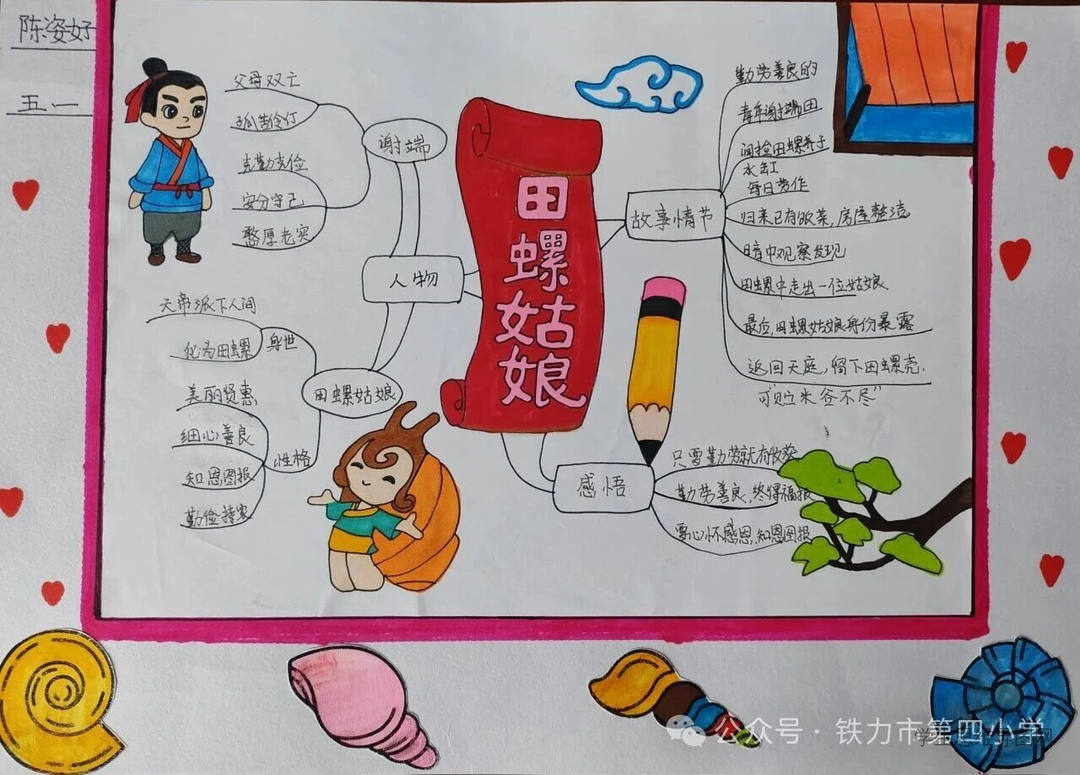 陈姿好
五一
田螺姑娘
人物
谢端
父母双亡
孤苦伶仃
克勤克俭
安分守己
憨厚老实
田螺姑娘
身世
天帝派下人间
化为田螺
性格
美丽贤惠
细心善良
知恩图报
勤俭持家
故事情节
勤劳善良的
青年谢端田
间捡田螺养于
水缸
每日劳作
归来已有饭菜,房屋整洁
暗中观察发现
田螺中走出一位姑娘
最后,田螺姑娘身份暴露
返回天庭,留下田螺壳.
可“贮米谷不尽”
感悟
只要勤劳就有收获
勤劳善良,终得福报
要心怀感恩,知恩图报
公众号·铁力市第四小学